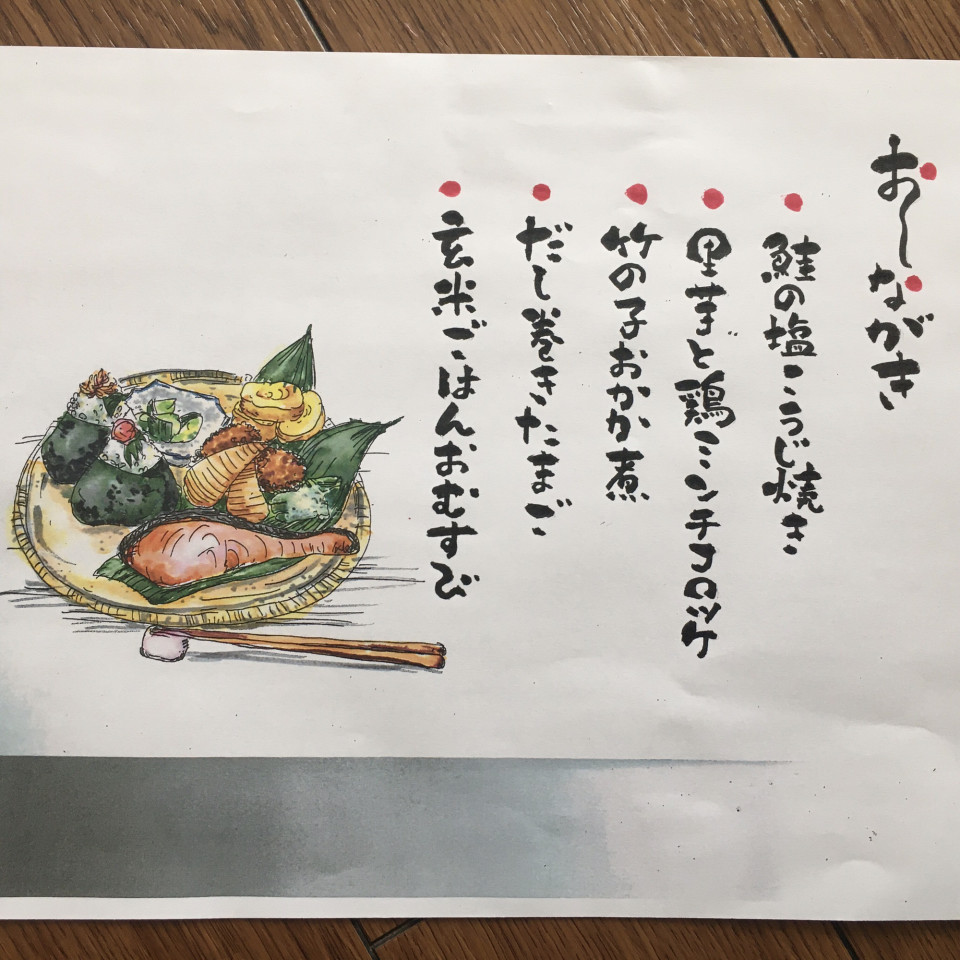 おしながき
• 鮭の塩こうじ焼き
• 里芋と鶏ミンチコロッケ
• 竹の子おかか煮
• だし巻きたまご
• 玄米ごはんおむすび